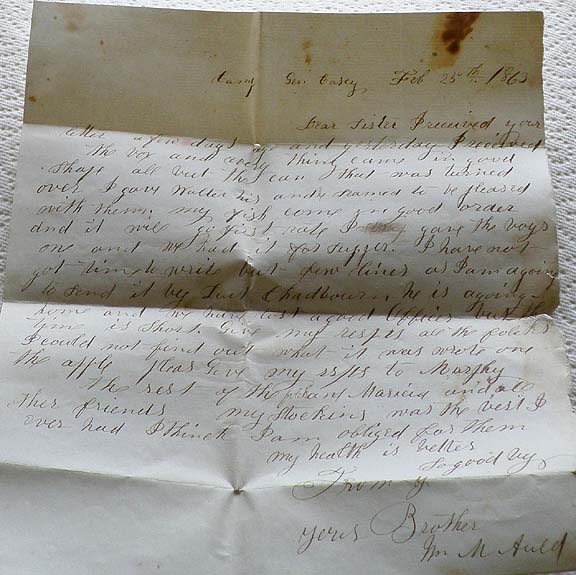 Camp Gen Casey Feb 25th 1863
Dear Sister I received your
letter a few days ago and yesterday I received
the box and every thing came in good
shape all but the can that was turned
over I gave Walter his and he seamed to be pleased
with them. my fish come in good order
and it will go first rate I gave the boys
one and we had it for supper. I have not
got time to write but few lines as I am agoing
to send it by Lieut Chadbourn, he is agoing
home and we have lost a good officer but the
time is short. Give my respts all the folks
I could not find out what it was wrote one
the apple pleas Give my respts to Murphy
the rest of the and all
ther friends my Stockins was the best I
ever had I think I am obliged for them
my health is better
So good by
From
yours Brother
Wm M Auld